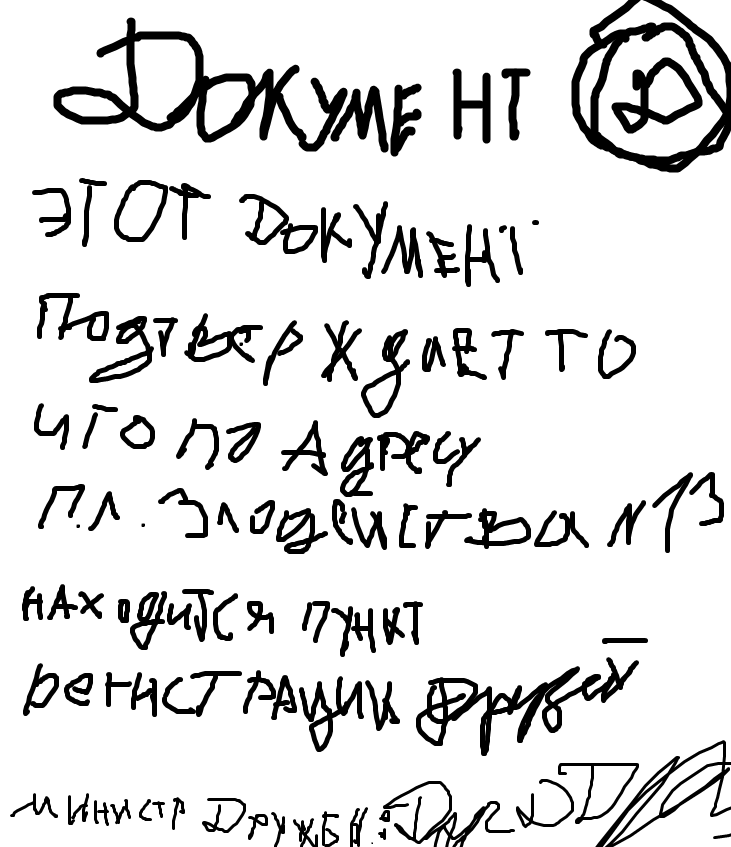 ДОКУМЕНТ Д
ЭТОТ ДОКУМЕНТ
ПОДТВЕРЖДАЕТ ТО
ЧТО ПО АДРЕСУ
П.Л. ЗЛОДЕИСТВА N13
НАХОДИТСЯ ПУНКТ
РЕГИСТРАЦИИ ДРУЗЕЙ
МИНИСТР ДРУЖБЫ: